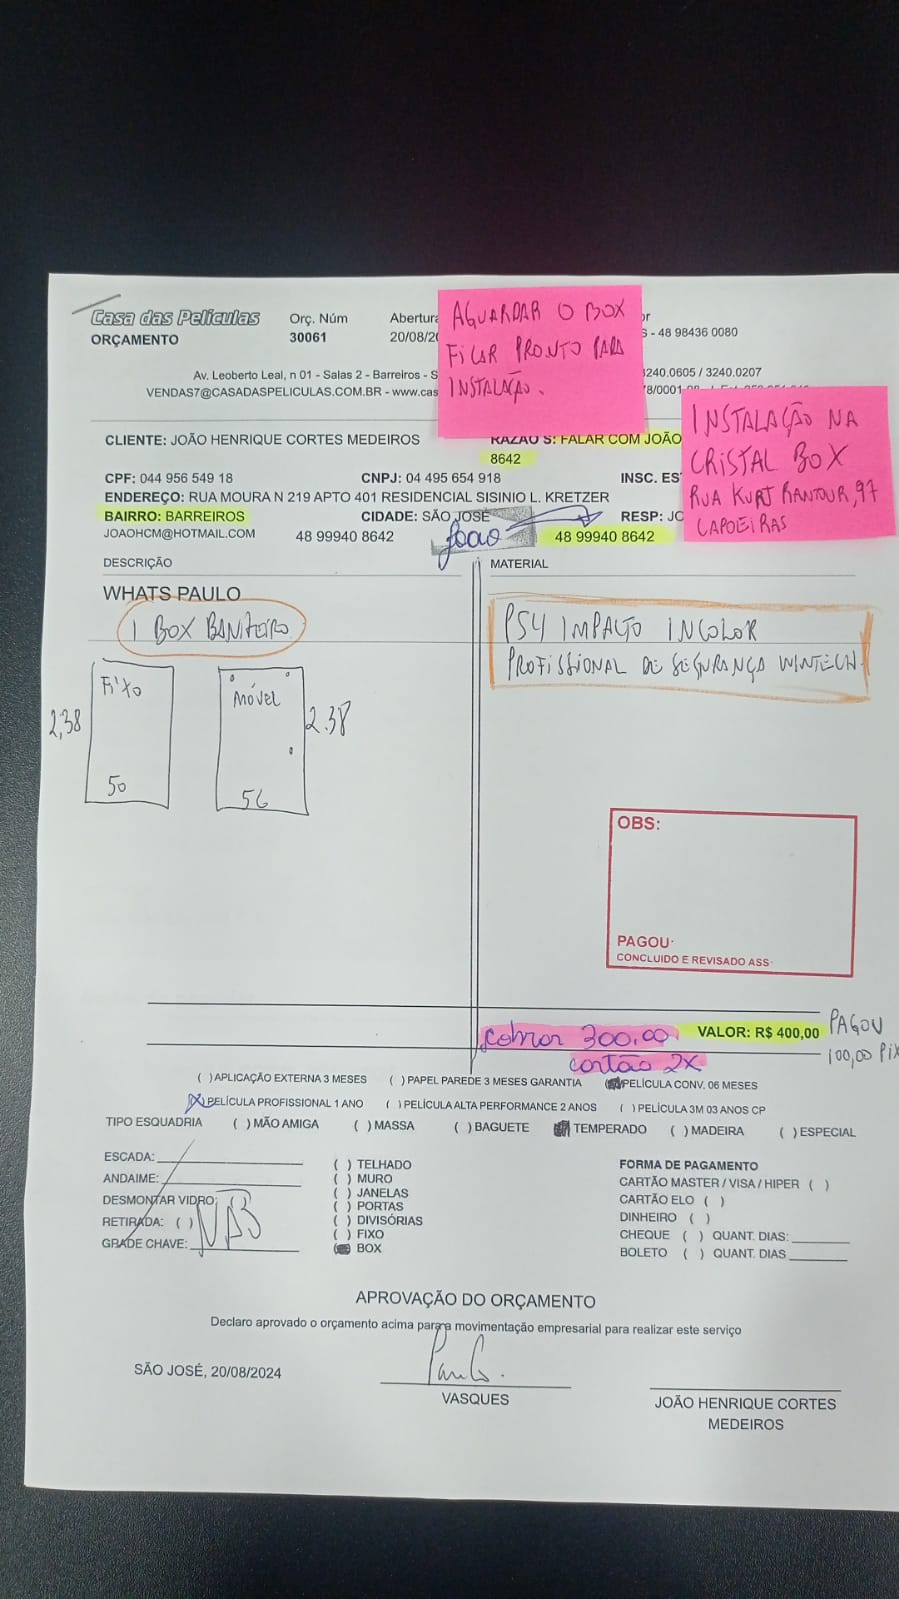 Casa das Películas
ORÇAMENTO
Orç. Núm
30061
Abertura
20/08/20
AGUARDAR O BOX
FICAR PRONTO PARA
INSTALAÇÃO.
- 48 98436 0080
Av. Leoberto Leal, n 01 - Salas 2 - Barreiros - S
3240.0605 / 3240.0207
VENDAS7@CASADASPELICULAS.COM.BR - www.cas
INSTALAÇÃO NA
CRISTAL BOX
RUA KURT RANTOUR, 97
CAPOEIRAS
CLIENTE: JOÃO HENRIQUE CORTES MEDEIROS
RAZAO S: FALAR COM JOÃO
8642
CPF: 044 956 549 18
CNPJ: 04 495 654 918
INSC. ES
ENDEREÇO: RUA MOURA N 219 APTO 401 RESIDENCIAL SISINIO L. KRETZER
BAIRRO: BARREIROS
CIDADE: SÃO JOSÉ
RESP: JO
JOAOHCM@HOTMAIL.COM
48 99940 8642
João
48 99940 8642
DESCRIÇÃO
MATERIAL
WHATS PAULO
1 BOX BANHEIRO
PS4 IMPACTO INCOLOR
PROFISSIONAL DE SEGURANÇA WINTECH
Fixo
2,38
50
Móvel
2.38
56
OBS:
PAGOU:
CONCLUIDO E REVISADO ASS:
cobrar 300,00
VALOR: R$ 400,00
PAGOU
100,00 PIX
cartão 2X
( ) APLICAÇÃO EXTERNA 3 MESES
( ) PAPEL PAREDE 3 MESES GARANTIA
PELÍCULA CONV. 06 MESES
(X) PELÍCULA PROFISSIONAL 1 ANO
( ) PELÍCULA ALTA PERFORMANCE 2 ANOS
( ) PELÍCULA 3M 03 ANOS CP
TIPO ESQUADRIA
( ) MÃO AMIGA
( ) MASSA
( ) BAGUETE
TEMPERADO
( ) MADEIRA
( ) ESPECIAL
ESCADA:
ANDAIME:
DESMONTAR VIDRO:
RETIRADA: ( )
GRADE CHAVE:
( ) TELHADO
( ) MURO
( ) JANELAS
( ) PORTAS
( ) DIVISÓRIAS
( ) FIXO
BOX
FORMA DE PAGAMENTO
CARTÃO MASTER / VISA / HIPER ( )
CARTÃO ELO ( )
DINHEIRO ( )
CHEQUE ( ) QUANT. DIAS:
BOLETO ( ) QUANT. DIAS
APROVAÇÃO DO ORÇAMENTO
Declaro aprovado o orçamento acima para a movimentação empresarial para realizar este serviço
SÃO JOSÉ, 20/08/2024
Paulo.
VASQUES
JOÃO HENRIQUE CORTES
MEDEIROS